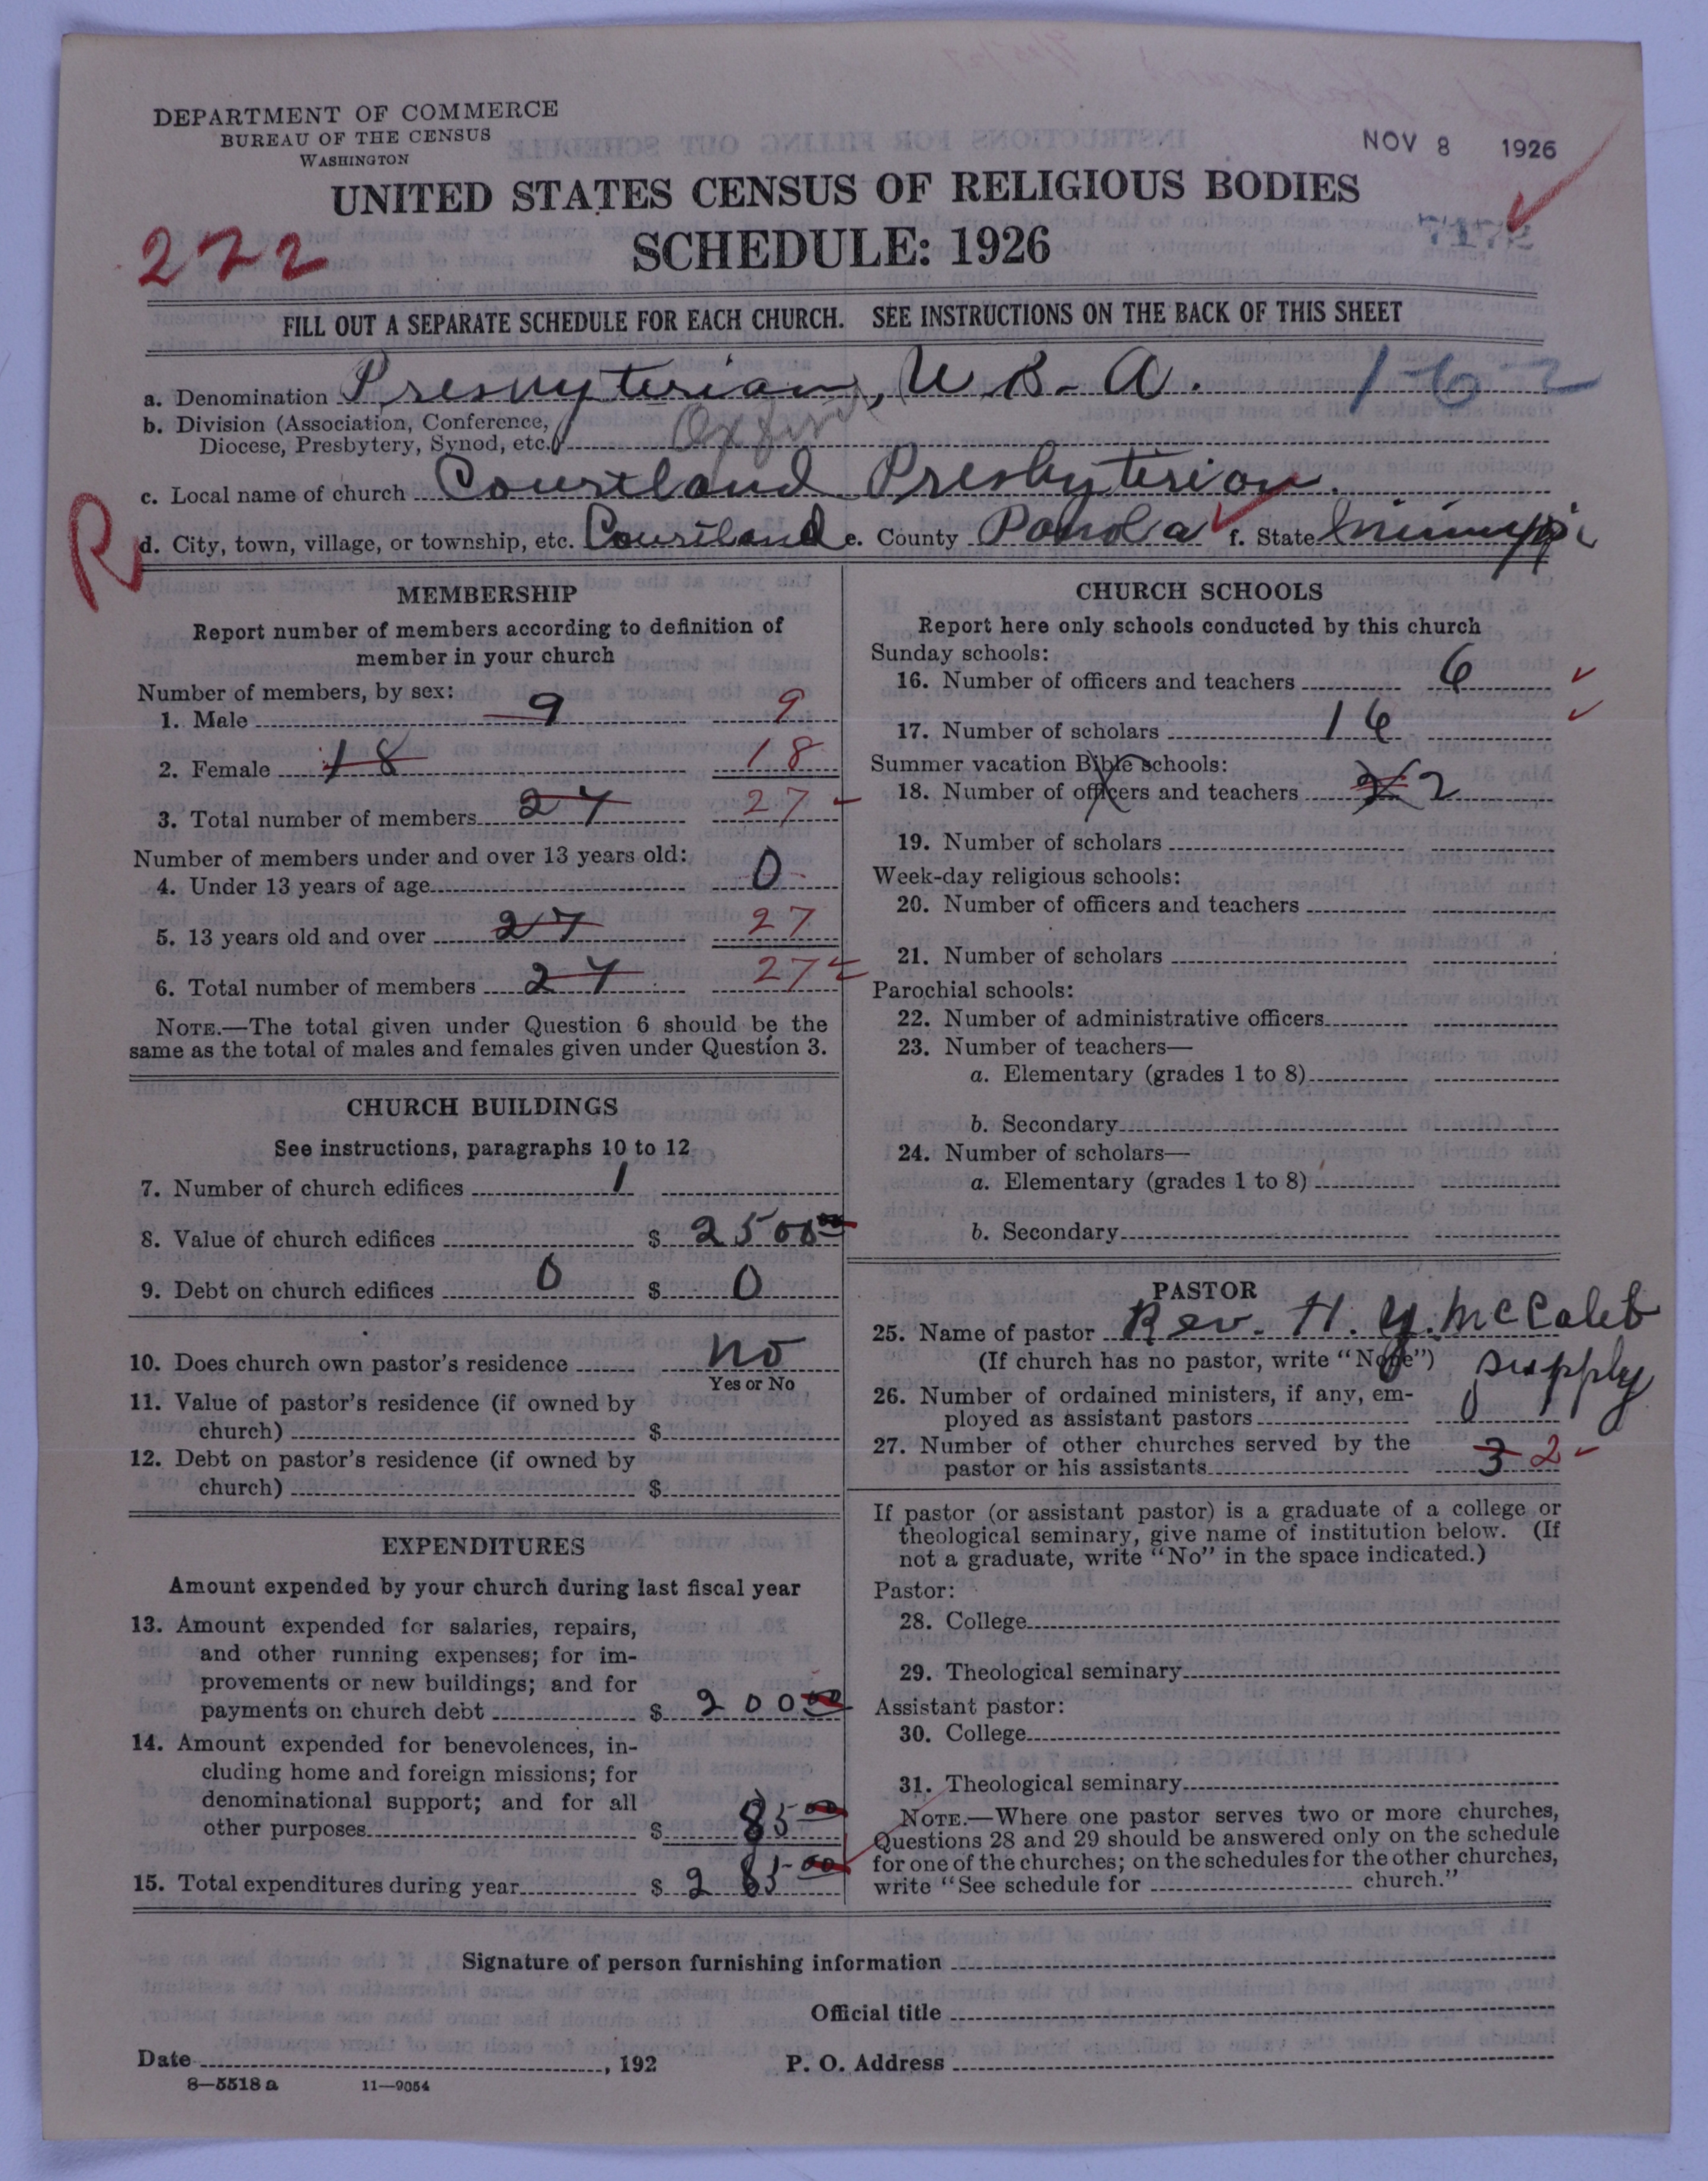 DEPARTMENT OF COMMERCE
BUREAU OF THE CENSUS
WASHINGTON
NOV 8 1926
UNITED STATES CENSUS OF RELIGIOUS BODIES
7172
272
SCHEDULE: 1926
FILL OUT A SEPARATE SCHEDULE FOR EACH CHURCH. SEE INSTRUCTIONS ON THE BACK OF THIS SHEET
a. Denomination Presbyterian, U. S. A. 1-6-2
b. Division (Association, Conference,
Diocese, Presbytery, Synod, etc.) Oxford
c. Local name of church Courtland Presbyterian.
R
d. City, town, village, or township, etc. Courtland e. County Panola f. State Mississippi
MEMBERSHIP
Report number of members according to definition of
member in your church
Number of members, by sex:
1. Male 9 9
2. Female 18 18
3. Total number of members 27 27
Number of members under and over 13 years old:
4. Under 13 years of age 0
5. 13 years old and over 27 27
6. Total number of members 27 27
NOTE.—The total given under Question 6 should be the
same as the total of males and females given under Question 3.
CHURCH BUILDINGS
See instructions, paragraphs 10 to 12
7. Number of church edifices 1
8. Value of church edifices $ 2500 00
9. Debt on church edifices 0 $ 0
10. Does church own pastor's residence no
Yes or No
11. Value of pastor's residence (if owned by
church) $
12. Debt on pastor's residence (if owned by
church) $
EXPENDITURES
Amount expended by your church during last fiscal year
13. Amount expended for salaries, repairs,
and other running expenses; for im-
provements or new buildings; and for
payments on church debt $ 200 00
14. Amount expended for benevolences, in-
cluding home and foreign missions; for
denominational support; and for all
other purposes $ 85 00
15. Total expenditures during year $ 285 00
CHURCH SCHOOLS
Report here only schools conducted by this church
Sunday schools:
16. Number of officers and teachers 6
17. Number of scholars 16
Summer vacation Bible schools:
18. Number of officers and teachers 2
19. Number of scholars
Week-day religious schools:
20. Number of officers and teachers
21. Number of scholars
Parochial schools:
22. Number of administrative officers
23. Number of teachers—
a. Elementary (grades 1 to 8)
b. Secondary
24. Number of scholars—
a. Elementary (grades 1 to 8)
b. Secondary
PASTOR
25. Name of pastor Rev. H. Y. McCaleb
(If church has no pastor, write "None") supply
26. Number of ordained ministers, if any, em-
ployed as assistant pastors 0
27. Number of other churches served by the
pastor or his assistants 3 2
If pastor (or assistant pastor) is a graduate of a college or
theological seminary, give name of institution below. (If
not a graduate, write "No" in the space indicated.)
Pastor:
28. College
29. Theological seminary
Assistant pastor:
30. College
31. Theological seminary
NOTE.—Where one pastor serves two or more churches,
Questions 28 and 29 should be answered only on the schedule
for one of the churches; on the schedules for the other churches,
write "See schedule for church."
Signature of person furnishing information
Official title
Date , 192 P. O. Address
8—5518 a 11—9054